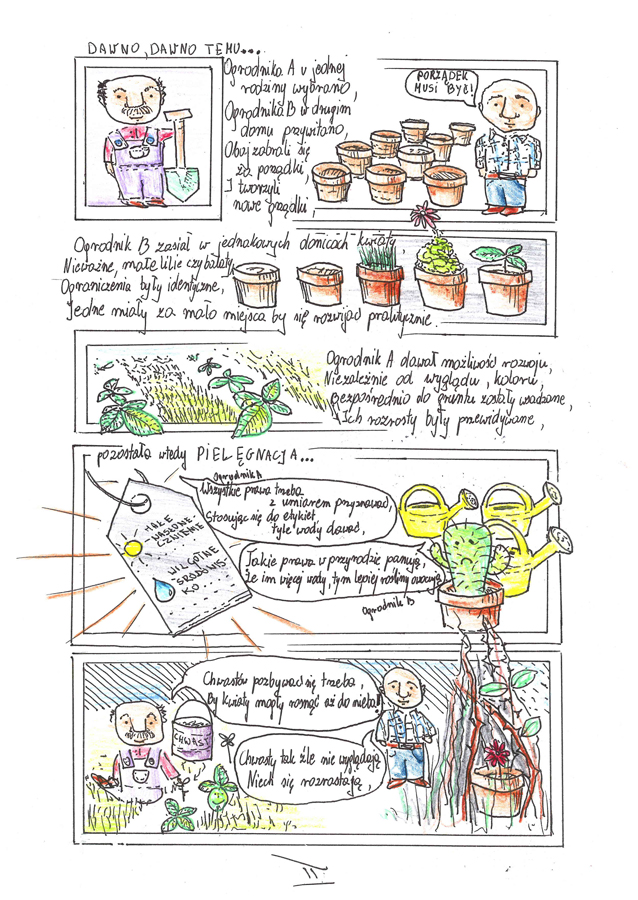 DAWNO, DAWNO TEMU...
Ogrodnika A u jednej
rodziny wybrano,
Ogrodnika B w drugim
domu przywitano,
Obaj zabrali się
za porządki,
I tworzyli
nowe grządki,
PORZĄDEK
MUSI BYĆ!
Ogrodnik B zasiał w jednakowych donicach kwiaty,
Nieważne, małe lilie czy bataty,
Ograniczenia były identyczne,
Jedne miały za mało miejsca by się rozwijać praktycznie.
Ogrodnik A dawał możliwość rozwoju,
Niezależnie od wyglądu, koloru,
Bezpośrednio do gruntu zostały wsadzane,
Ich rozrosty były przewidywane,
pozostała wtedy PIELĘGNACJA...
Ogrodnik A
Wszystkie prawa trzeba
z umiarem przyznawać,
Stosując się do etykiet
tyle wody dawać,
MAŁE
NASŁONE-
CZNIENIE
WILGOTNE
ŚRODOWIS-
KO
Jakie prawa w przyrodzie panują,
Że im więcej wody, tym lepiej rośliny owocują,
Ogrodnik B
Chwastów pozbywać się trzeba,
By kwiaty mogły rosnąć aż do nieba!
CHWAST
Chwasty tak źle nie wyglądają
Niech się rozrastają,
11